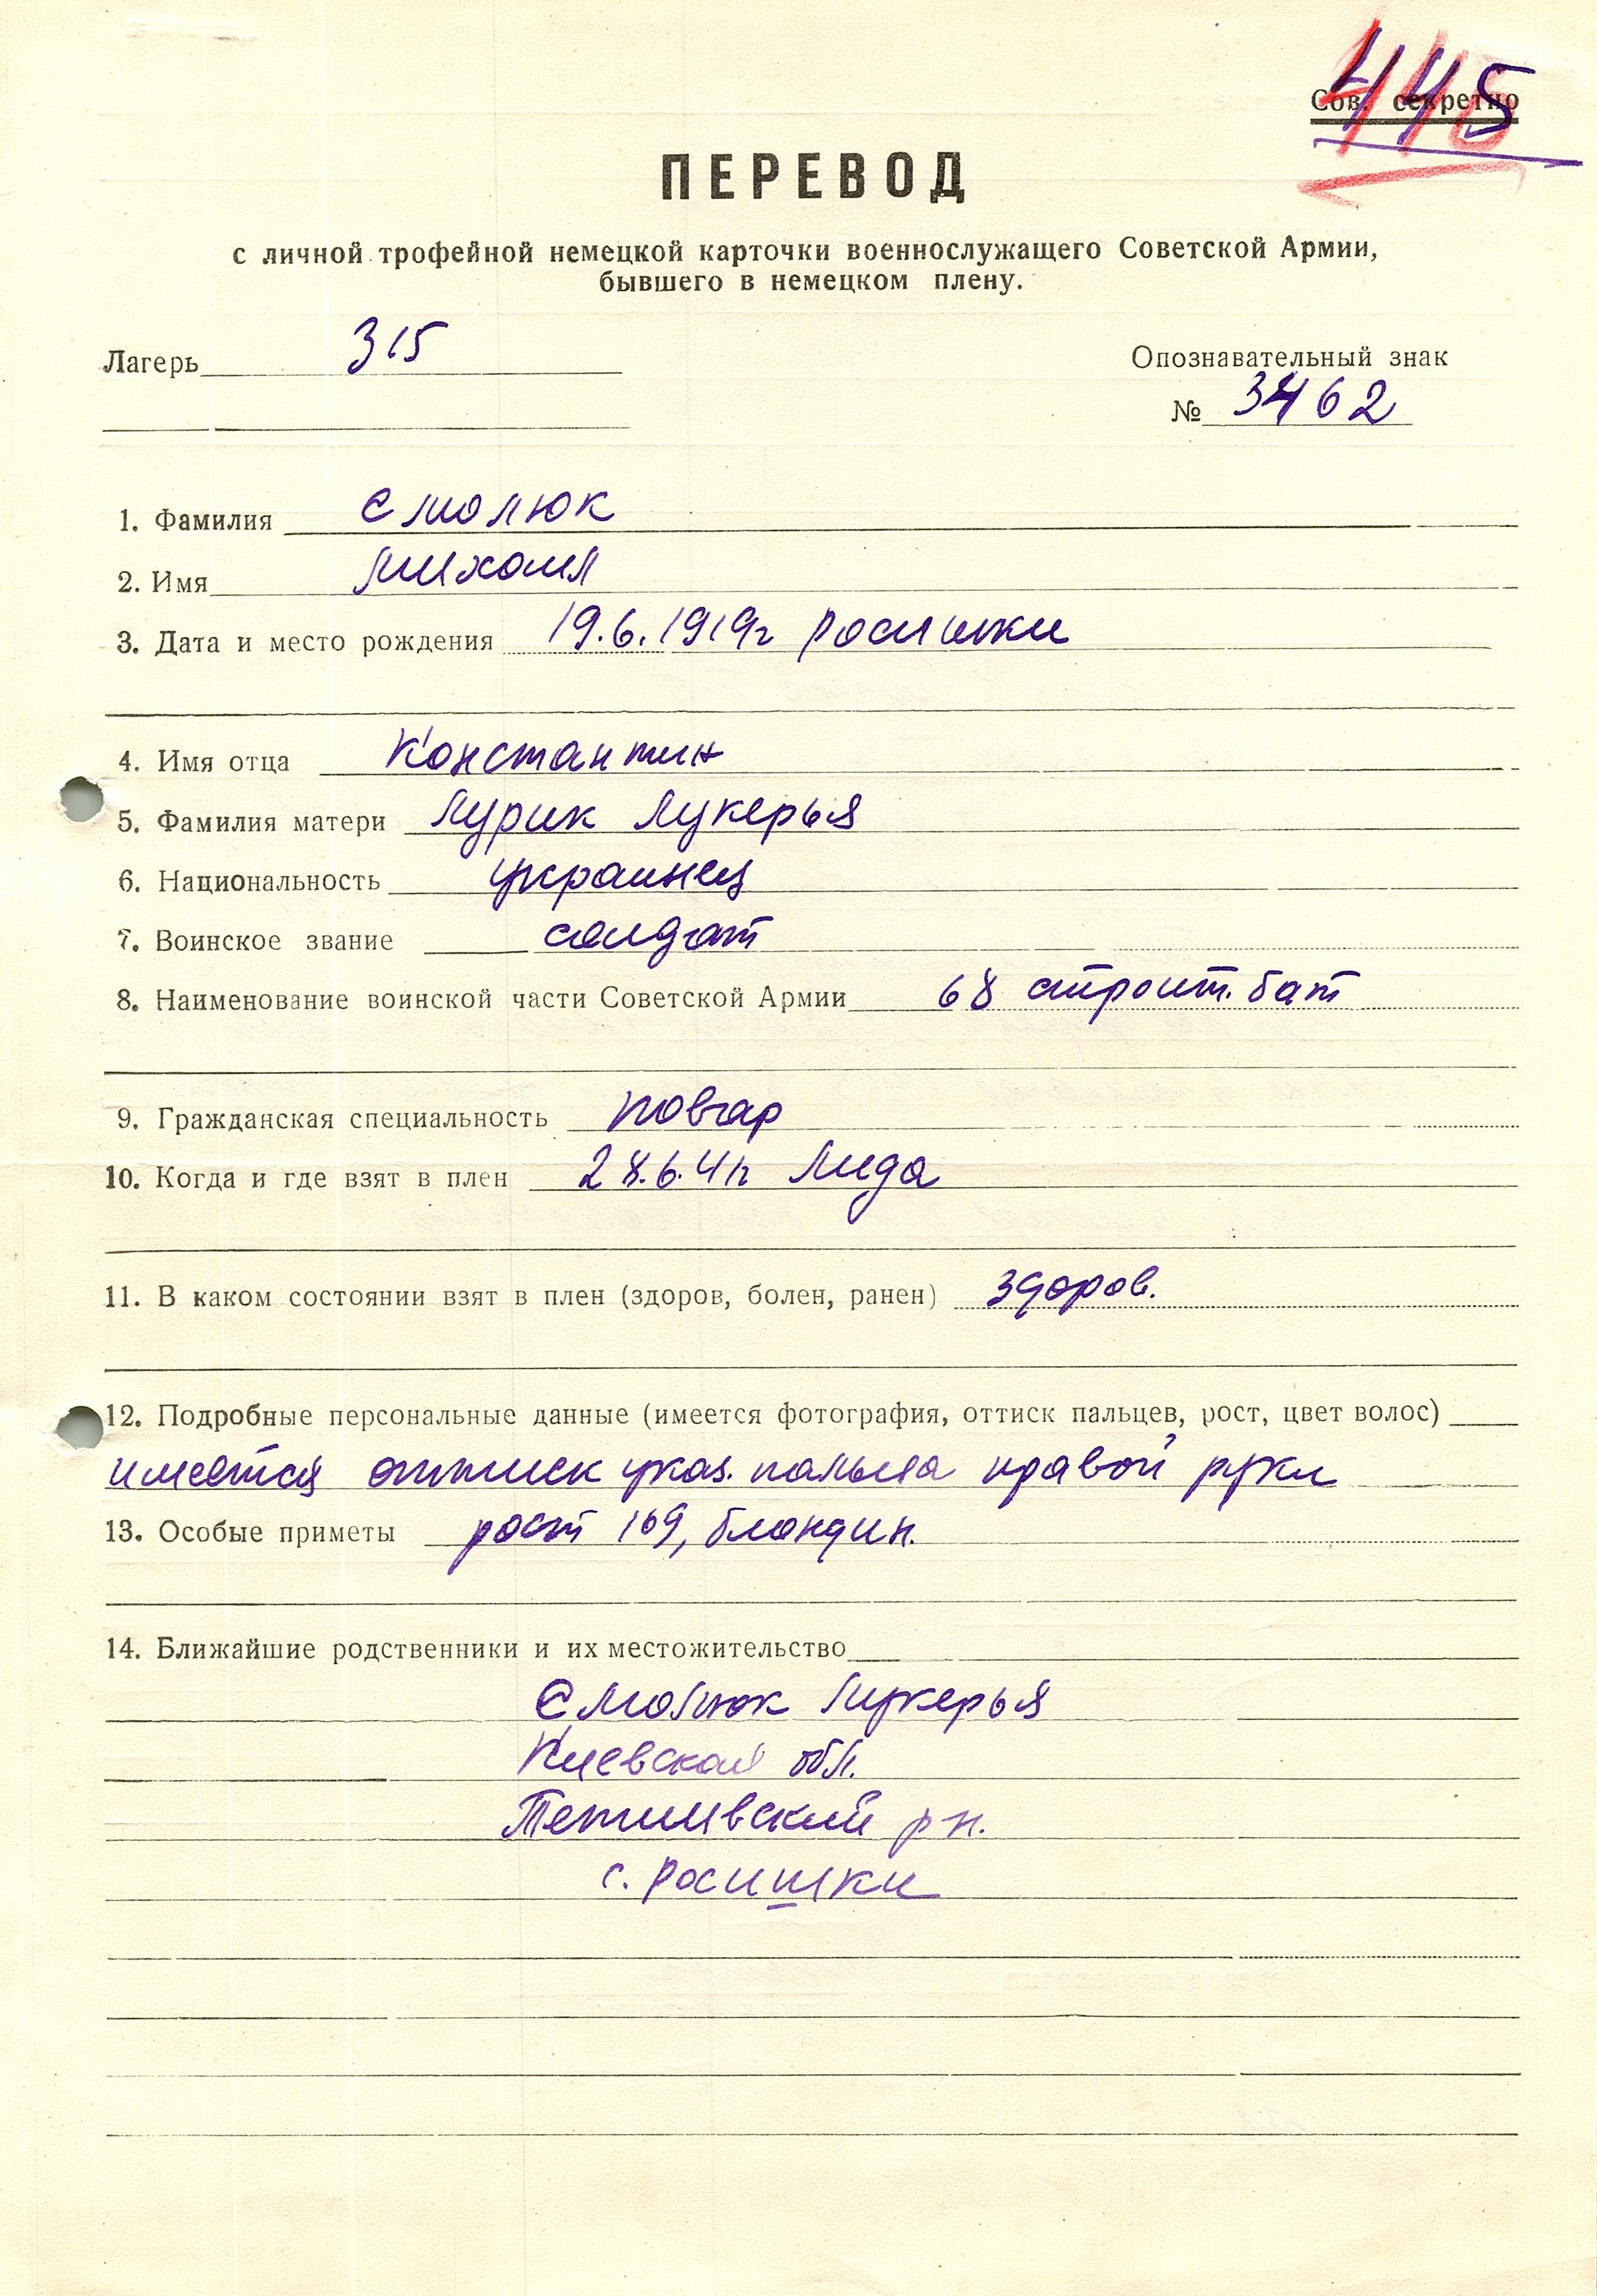 445
Сов. секретно
ПЕРЕВОД
с личной трофейной немецкой карточки военнослужащего Советской Армии,
бывшего в немецком плену.
Лагерь 315
Опознавательный знак
№ 3462
1. Фамилия Смолюк
2. Имя Михаил
3. Дата и место рождения 19.6.1919г Росишки
4. Имя отца Константин
5. Фамилия матери Лурик Лукерья
6. Национальность украинец
7. Воинское звание солдат
8. Наименование воинской части Советской Армии 68 строит. бат
9. Гражданская специальность повар
10. Когда и где взят в плен 28.6.41г Лида
11. В каком состоянии взят в плен (здоров, болен, ранен) здоров.
12. Подробные персональные данные (имеется фотография, оттиск пальцев, рост, цвет волос)
имеется оттиск указ. пальца правой руки
13. Особые приметы рост 169, блондин.
14. Ближайшие родственники и их местожительство
Смолюк Лукерья
Киевская обл.
Тетиивский р н.
с. Росишки